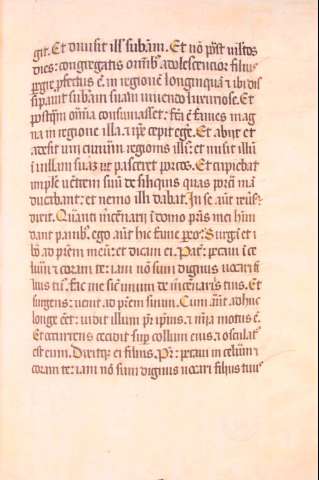 git. Et diuisit ill' subām. Et nō p̄st ml̄tos
dies: congregatis om̄ib' adolescentior filius
pegre p̄fectus ē in regionē longinquā ⁊ ibi dis
sipauit subām suam uiuendo luxuriose. Et
postqm̄ om̄ia consumasset: fc̄a ē fames mag
na in regione illa ⁊ ip̄e cepit egē. Et abijt et
adhesit uni ciuium regionis illi': et misit illū
ī uillam suaʒ ut pasceret porcos. Et cupiebat
imple uētrem suū de siliquis quas porci mā
ducabant: et nemo illi dabat. In se aūt reus'
dixit. Quanti mcēnarij ī domo pris mei hūn
dant panib'. ego aūt hic fame peo. Surgā et i
bo ad prēm meū: et dicam ei. Pat': peccaui ī ce
lum ⁊ coram te: iam nō sum dignus uocari fi
lius tu'. Fac me sic unum de mcēnarijs tuis. Et
surgens: uenit ad prēm suum. Cum aūt adhuc
longe eēt: uidit illum pr̄ ipius. ⁊ mīa motus ē.
Et occurrens cecidit sup collum eius ⁊ osculat'
est eum. Dixitqʒ ei filius. Pr̄: peccaui in celum ⁊
coram te: iam nō sum dignus uocari filius tuus